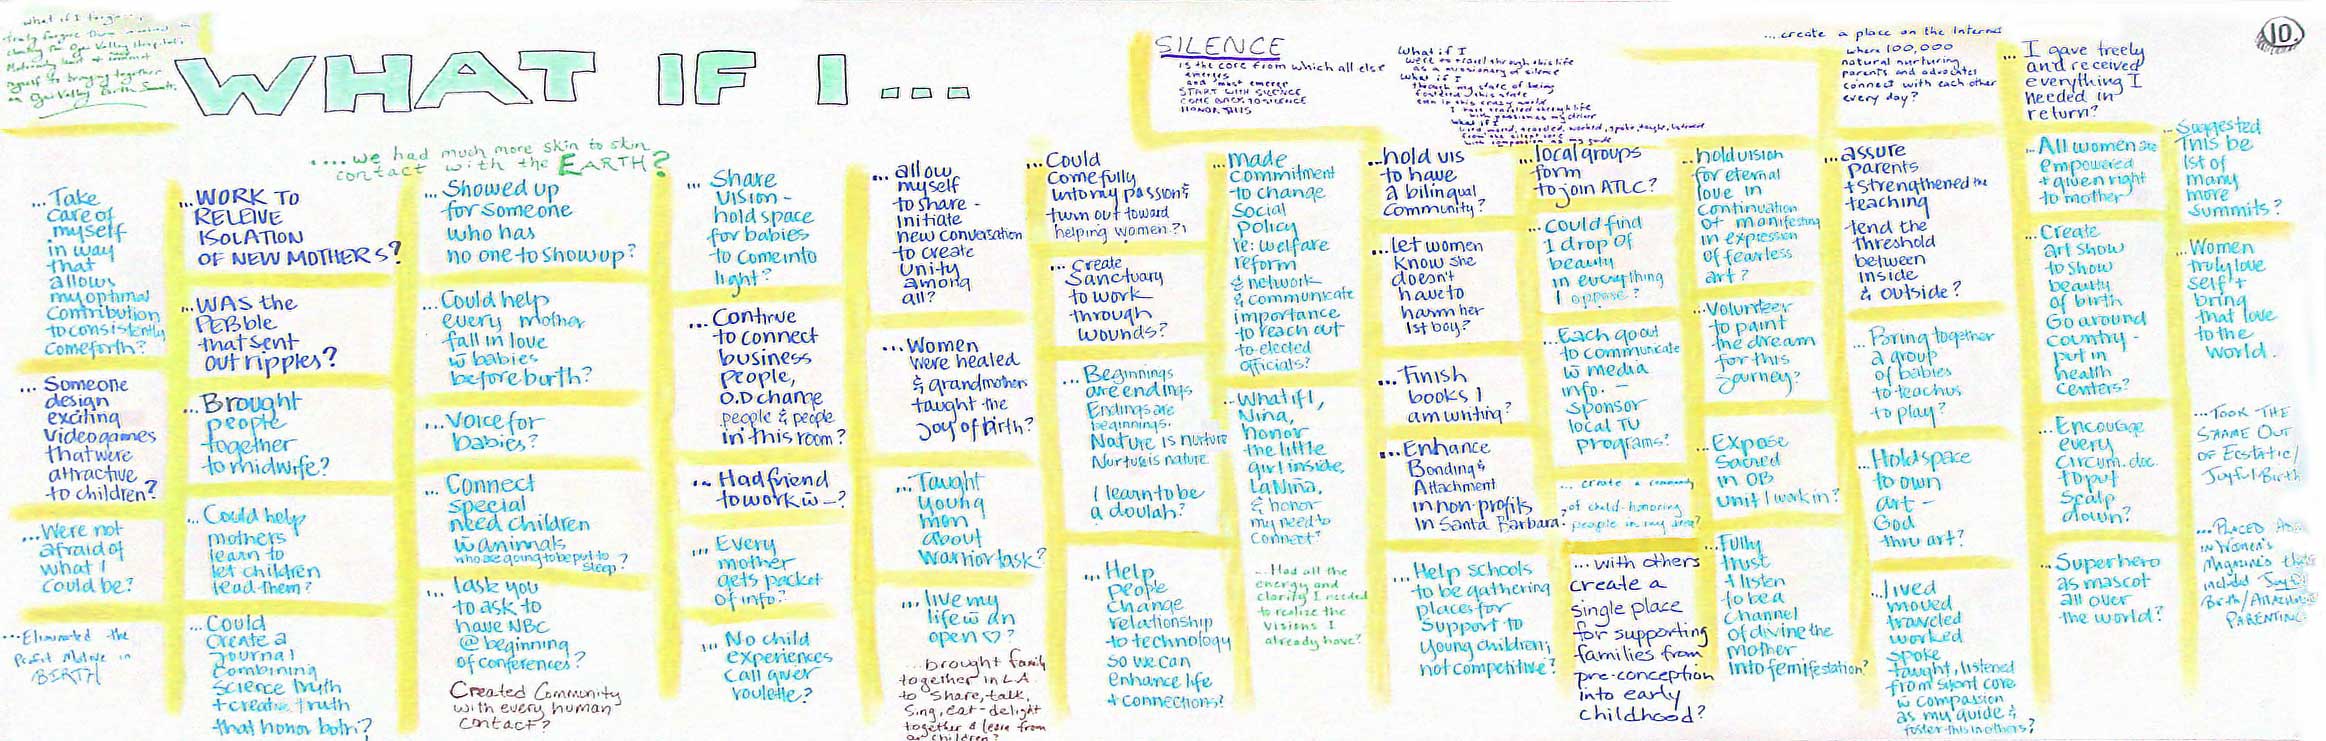 What if I forgive....,
truly forgive
closing the Ojai Valley Hospital's
Maternity
myself to bringing together
an Ojai Valley Birth Summit.
WHAT IF I ...
....we had much more skin to skin
contact with the EARTH?
SILENCE
IS the core from which all else
emerges
and must emerge
START WITH SILENCE
COME BACK TO SILENCE
HONOR THIS
What if I
were to travel through this life
as a missionary of silence
What if I
through my state of being
fostered this state
even in this crazy world
I have traveled through life
with passion as my driver
What if I
lived, moved, traveled, worked, spoke, taught, listened
from the silent core
with compassion as my guide
...create a place on the Internet
where 100,000
natural nurturing
parents and advocates
connect with each other
every day?
... I gave freely
and received
everything I
needed in
return?
10
...Take
care of
myself
in way
that
allows
my optimal
contribution
to consistently
come forth?
... Someone
design
exciting
video games
that were
attractive
to children?
...Were not
afraid of
what I
could be?
...Eliminated the
Profit Motive in
BIRTH
...WORK TO
RELEIVE
ISOLATION
OF NEW MOTHERS?
...WAS the
PEBble
that sent
out ripples?
...Brought
people
together
to midwife?
...Could help
mothers
learn to
let children
lead them?
...Could
Create a
Journal
Combining
Science truth
+ creative truth
that honor both?
...Showed up
for someone
who has
no one to show up?
...Could help
every mother
fall in love
w̄ babies
before birth?
...Voice for
babies?
... Connect
special
need children
w̄ animals
who are going to be put to
sleep?
... I ask you
to ask to
have NBC
@ beginning
of conferences?
Created Community
with every human
contact?
... Share
vision -
hold space
for babies
to come into
light?
... Continue
to connect
business
people,
O.D change
people & people
in this room?
... Had friend
to work w̄ —?
... Every
mother
gets packet
of info?
... No child
experiences
care giver
roulette?
... allow
myself
to share -
initiate
new conversation
to create
unity
among
all?
... Women
were healed
& grandmothers
taught the
Joy of birth?
...Taught
young
men
about
warrior task?
...live my
life w̄ an
open ♡?
...brought family
together in L.A.
to share, talk,
sing, eat - delight
together & learn from
our children?
...Could
come fully
into my passion &
turn out toward
helping women?
... Create
Sanctuary
to work
through
wounds?
... Beginnings
are endings
Endings are
beginnings.
Nature is nurture
Nurture is nature
I learn to be
a doulah?
... Help
people
change
relationship
to technology
so we can
enhance life
+ connections?
...made
commitment
to change
social
policy
re: welfare
reform
& network
& communicate
importance
to reach out
to elected
officials?
...What if I,
Nina,
honor
the little
girl inside,
La Niña,
& honor
my need to
connect?
...Had all the
energy and
clarity I needed
to realize the
visions I
already have?
...hold vis
to have
a bilingual
community?
...let women
know she
doesn't
have to
harm her
1st boy?
...finish
books I
am writing?
...Enhance
Bonding &
Attachment
in non-profits
in Santa Barbara?
... Help schools
to be gathering
places for
support to
young children;
not competitive?
...local groups
form
to join ATLC?
...could find
1 drop of
beauty
in everything
I oppose?
...Each go out
to communicate
w̄ media
info. -
sponsor
local TV
programs?
... create a community
of child-honoring
people in my area?
...with others
create a
single place
for supporting
families from
pre-conception
into early
childhood?
...hold vision
for eternal
love in
continuation
of manifesting
in expression
of fearless
art?
...Volunteer
to paint
the dream
for this
journey?
...Expose
Sacred
in OB
unit I work in?
...Fully
trust
+ listen
to be a
channel
of divine the
mother
into femifestation?
...assure
parents
+ strengthened the
teaching
tend the
threshold
between
inside
& outside?
...Bring together
a group
of babies
to teach us
to play?
...Hold space
to own
art -
God
thru art?
...lived
moved
traveled
worked
spoke
taught, listened
from silent core
w̄ compassion
as my guide &
foster this in others?
...All women are
empowered
+ given right
to mother
...Create
art show
to show
beauty
of birth
Go around
country -
put in
health
centers?
...Encourage
every
circum. doc.
to put
scalp
down?
...Superhero
as mascot
all over
the world?
...Suggested
this be
1st of
many
more
summits?
...Women
truly love
self +
bring
that love
to the
world.
...TOOK THE
SHAME OUT
OF Ecstatic/
Joyful Birth
...PLACED
in Women's
Magazines that
included Joyful
Birth/Attachment
PARENTING